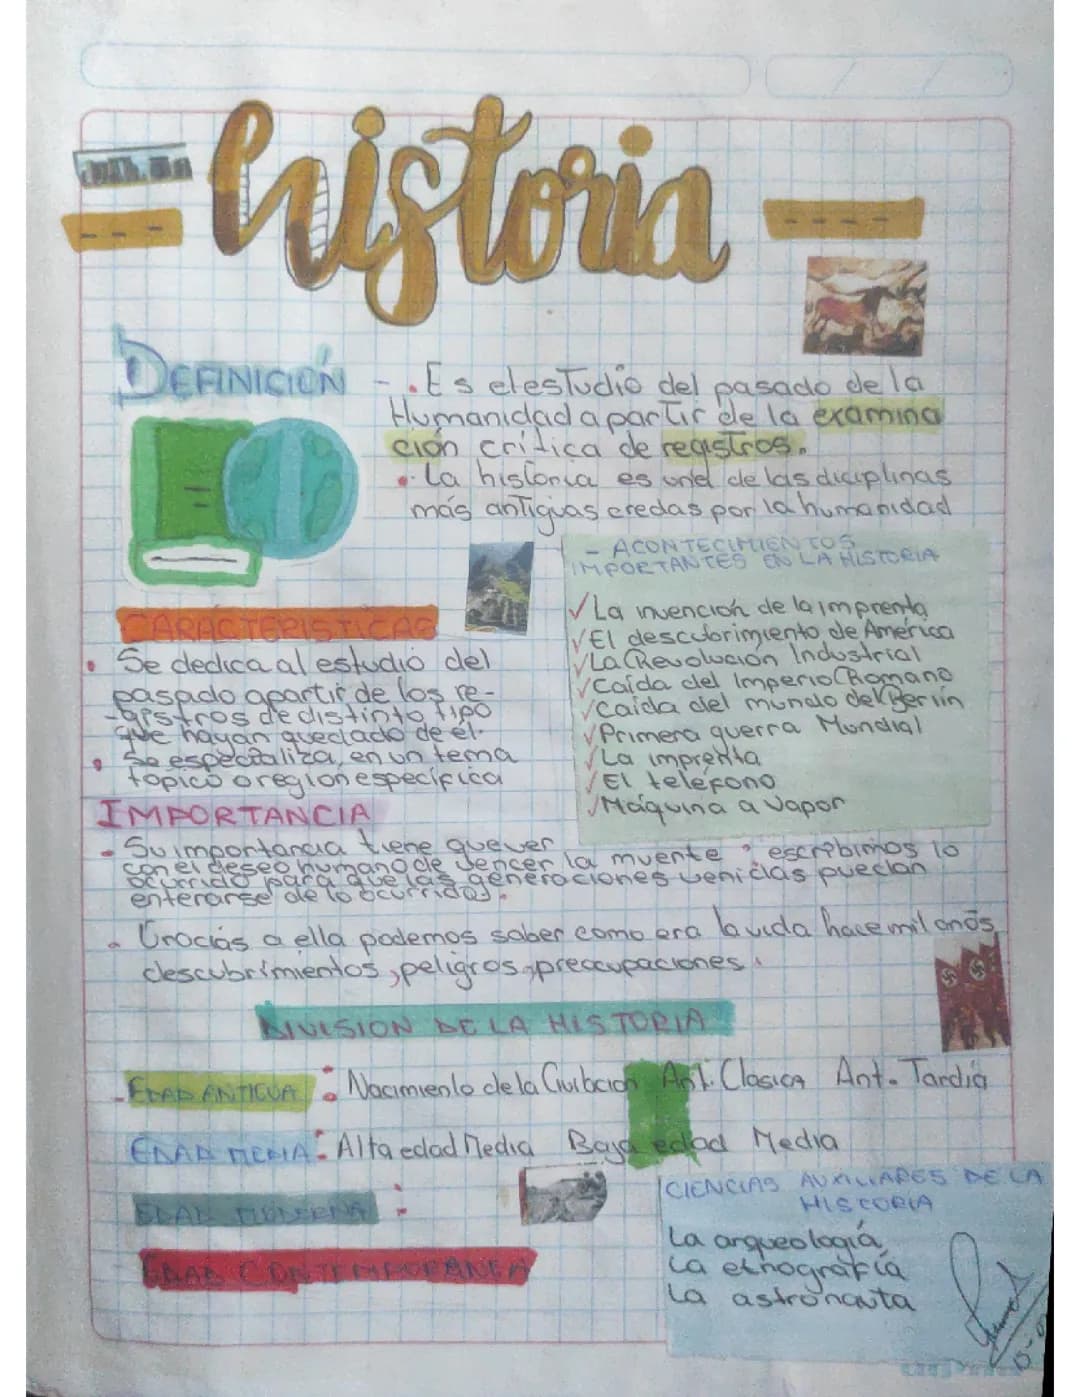 historia
DEFINICIÓN
- . Es el estudio del pasado de la
Humanidad a partir de la examina
ción crítica de registros.
. La historia es una de las diciplinas
más antiguas credas por la humanidad
- ACONTECIMIENTOS
IMPORTANTES EN LA HISTORIA
✓ La invención de la imprenta
✓ El descubrimiento de América
✓ La Revolución Industrial
✓ Caída del Imperio Romano
✓ Caída del mundo del Berlín
✓ Primera guerra Mundial
✓ La imprenta
✓ El teléfono
✓ Máquina a vapor
CARACTERISTICAS
• Se dedica al estudio del
pasado apartir de los re-
-gistros de distinto tipo
que hayan quedado de él.
• Se especializa, en un tema
topico o region especifica
IMPORTANCIA
- Su importancia tiene que ver
con el deseo humano de vencer la muente, escribimos lo
ocurrido para que las generaciones venidas puedan
enterarse de lo ocurrido.
. Gracias a ella podemos saber como era la vida hace mil anõs,
descubrimientos, peligros, preocupaciones.
DIVISION DE LA HISTORIA
- EDAD ANTIGUA : Nacimiento de la Civilización Ant. Clasica Ant. Tardía
EDAD MEDIA : Alta edad Media Baja edad Media
EDAD MODERNA :
EDAD CONTEMPORANEA
CIENCIAS AUXILIARES DE LA
HISTORIA
La arqueología
La etnografía
La astronauta